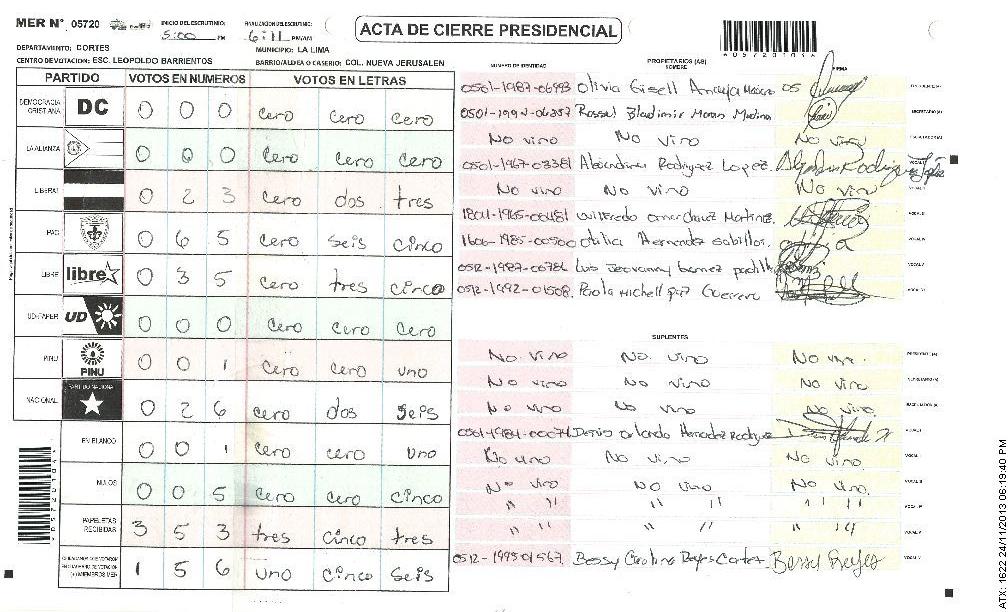 MER N° 05720
INICIO DEL ESCRUTINIO: 5:00 PM
FINALIZACION DEL ESCRUTINIO: 6:11 PM/AM
ACTA DE CIERRE PRESIDENCIAL
DEPARTAMENTO: CORTES
MUNICIPIO: LA LIMA
CENTRO DE VOTACION: ESC. LEOPOLDO BARRIENTOS
BARRIO/ALDEA O CASERIO: COL. NUEVA JERUSALEN
PARTIDO VOTOS EN NUMEROS VOTOS EN LETRAS
DEMOCRACIA CRISTIANA DC 0 0 0 cero cero cero
LA ALIANZA 0 0 0 cero cero cero
LIBERAL 0 2 3 cero dos tres
PAC 0 6 5 cero seis cinco
LIBRE libre 0 3 5 cero tres cinco
UD-FAPER UD 0 0 0 cero cero cero
PINU PINU 0 0 1 cero cero uno
NACIONAL PARTIDO NACIONAL 0 2 6 cero dos seis
EN BLANCO 0 0 1 cero cero uno
NULOS 0 0 5 cero cero cinco
PAPELETAS RECIBIDAS 3 5 3 tres cinco tres
(+) MIEMBROS MER 1 5 6 uno cinco seis
NUMERO DE IDENTIDAD PROPIETARIOS (AS) NOMBRE FIRMA
0501-1987-06993 Olivia Gisell
0501-1994-06357 Rossel Bladimir Medina
No vino No vino No vino
0501-1967-03381 Rodriguez Lopez
No vino No vino No vino
1804-1965-00481 Wilfredo Omar Chavez Martinez
1606-1985-00500 Otilia Hernandez
0512-1987-00786 Luis
0512-1992-01508 Paola Michell Guerrero
SUPLENTES
No vino No vino No vino
No vino No vino No vino
No vino No vino No vino
0501-1984-00074 Denis Orlando
No vino No vino No vino
No vino No vino No vino
" " " " " "
" " " " " "
0512-1995-01567 Bessy Carolina Reyes Cortez Bessy Reyes
ATX: 1622 24/11/2013 06:19:40 PM